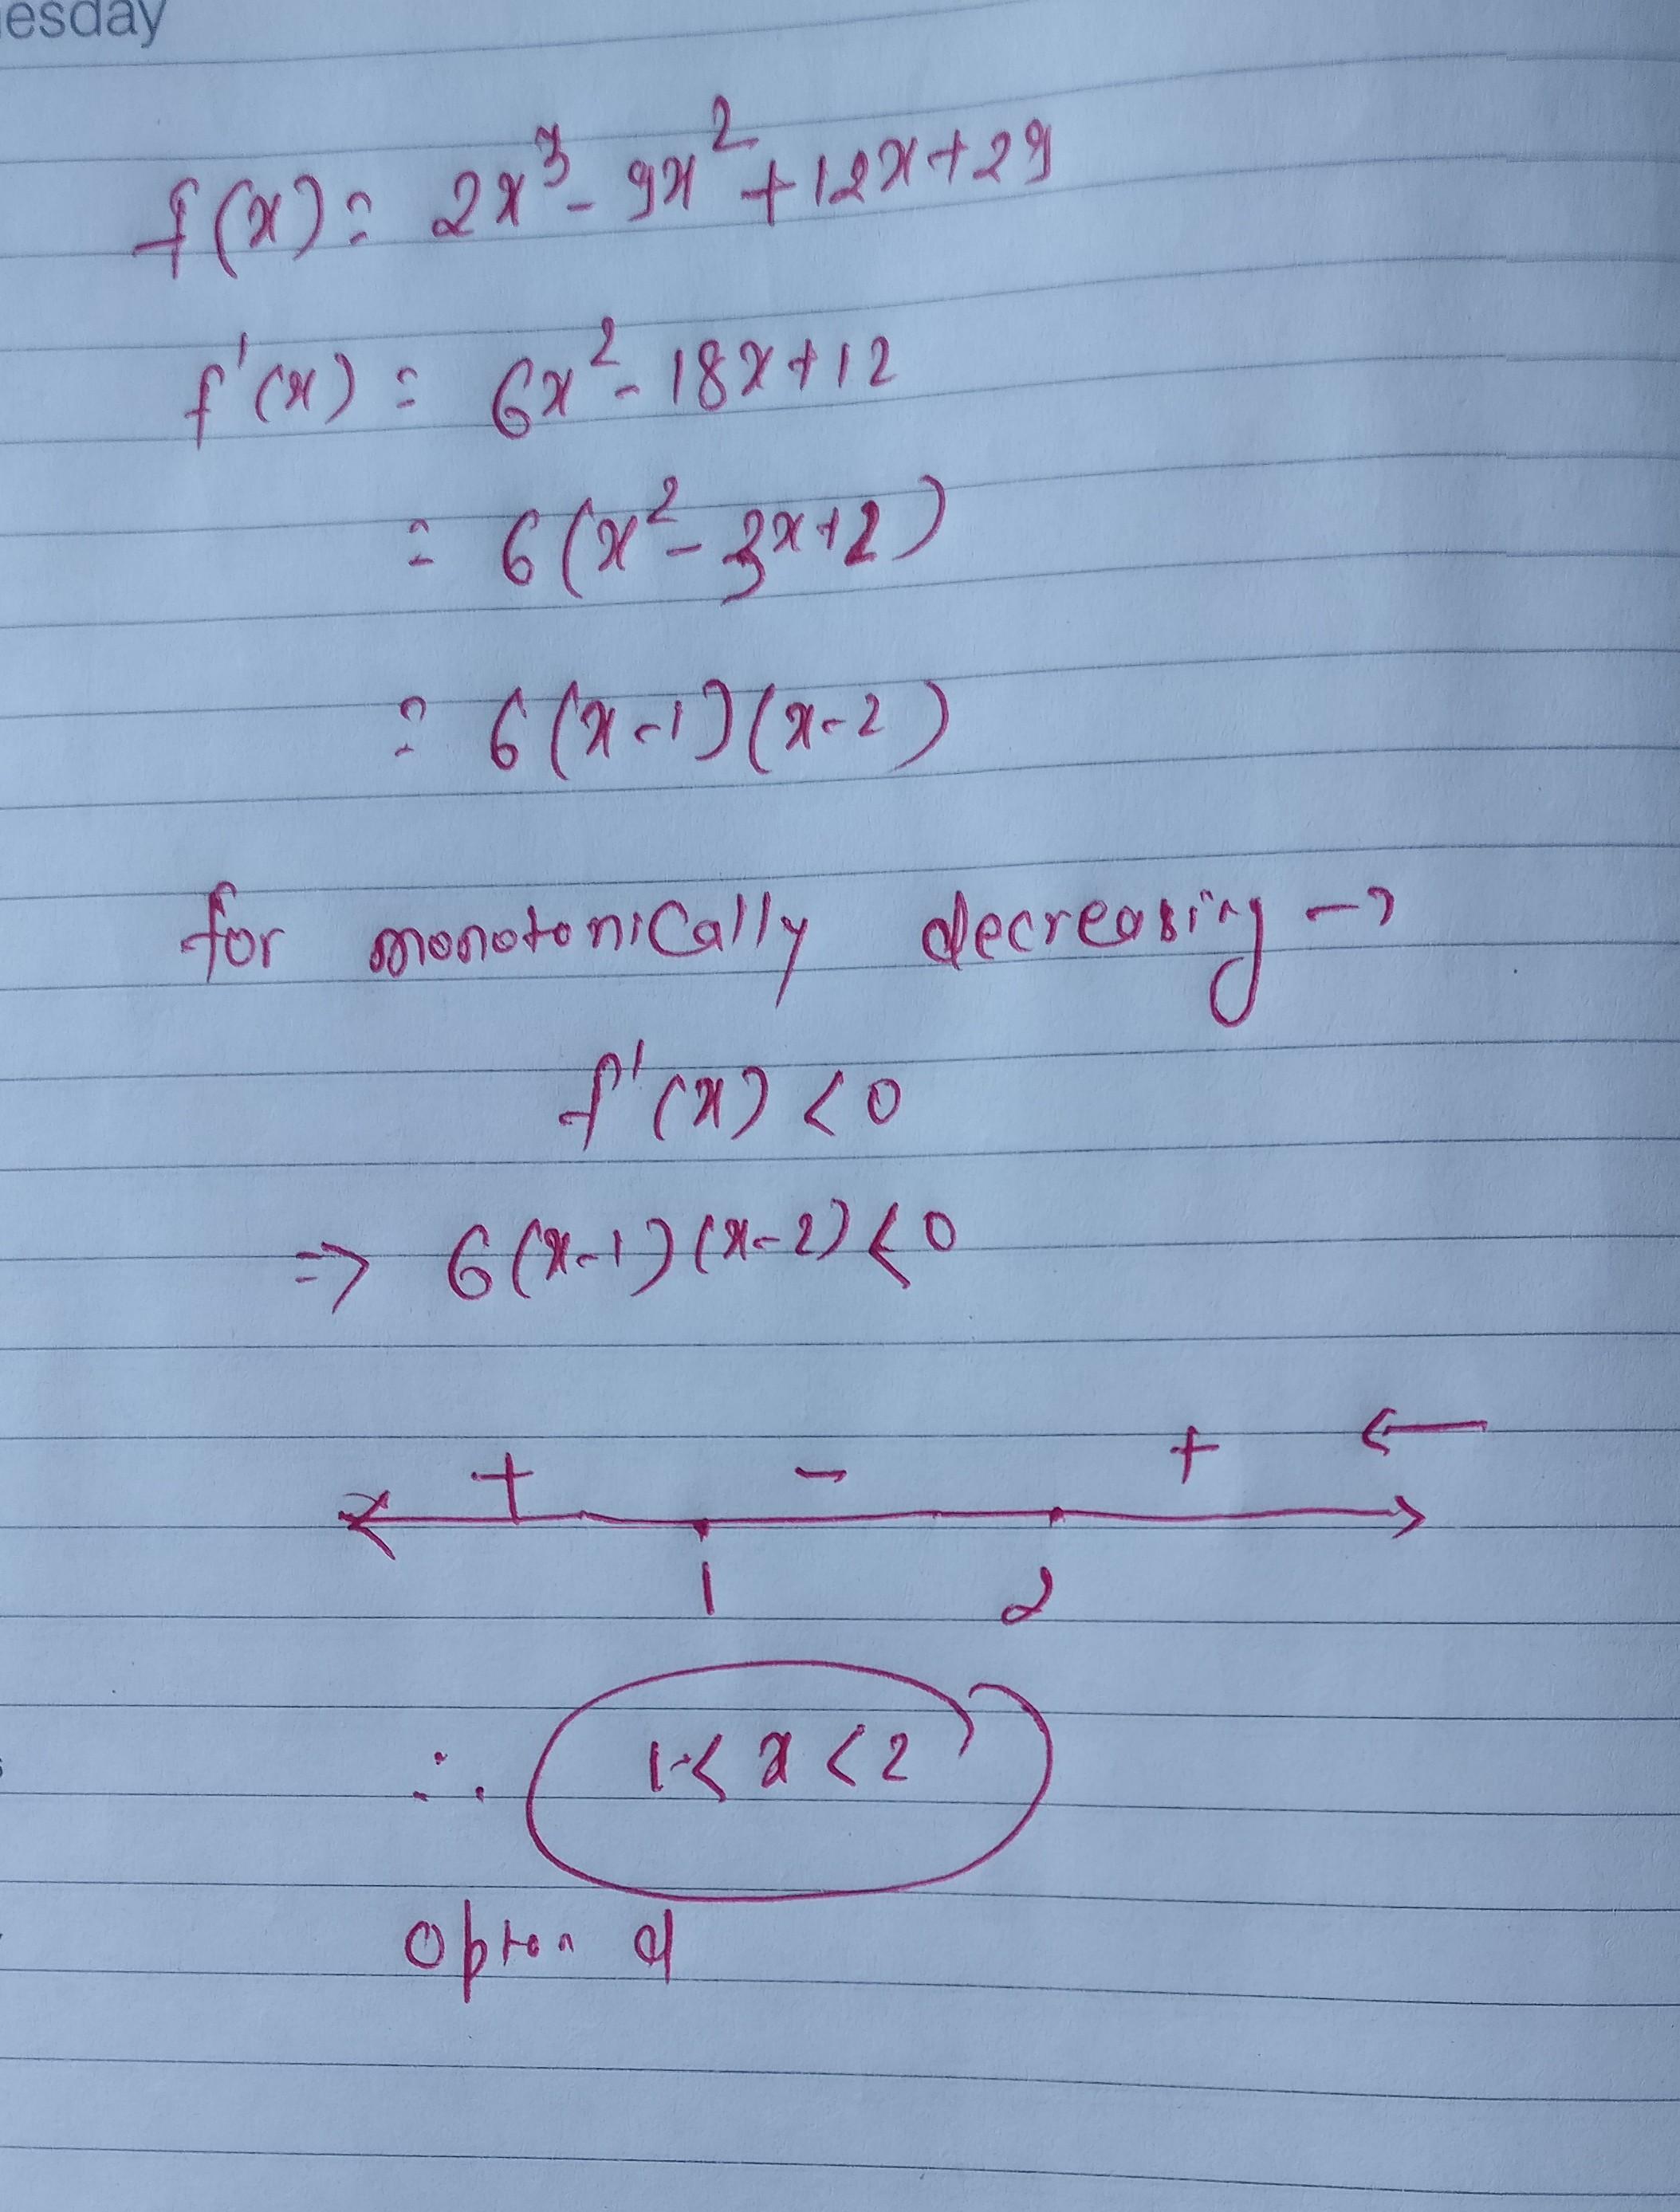 esday
f(x) = 2x³ - 9x² + 12x + 29
f'(x) = 6x² - 18x + 12
= 6(x² - 3x + 2)
= 6(x-1)(x-2)
for monotonically decreasing →
f'(x) < 0
⇒ 6(x-1)(x-2) < 0
+ - + ←
1 2
∴ 1 < x < 2
option d